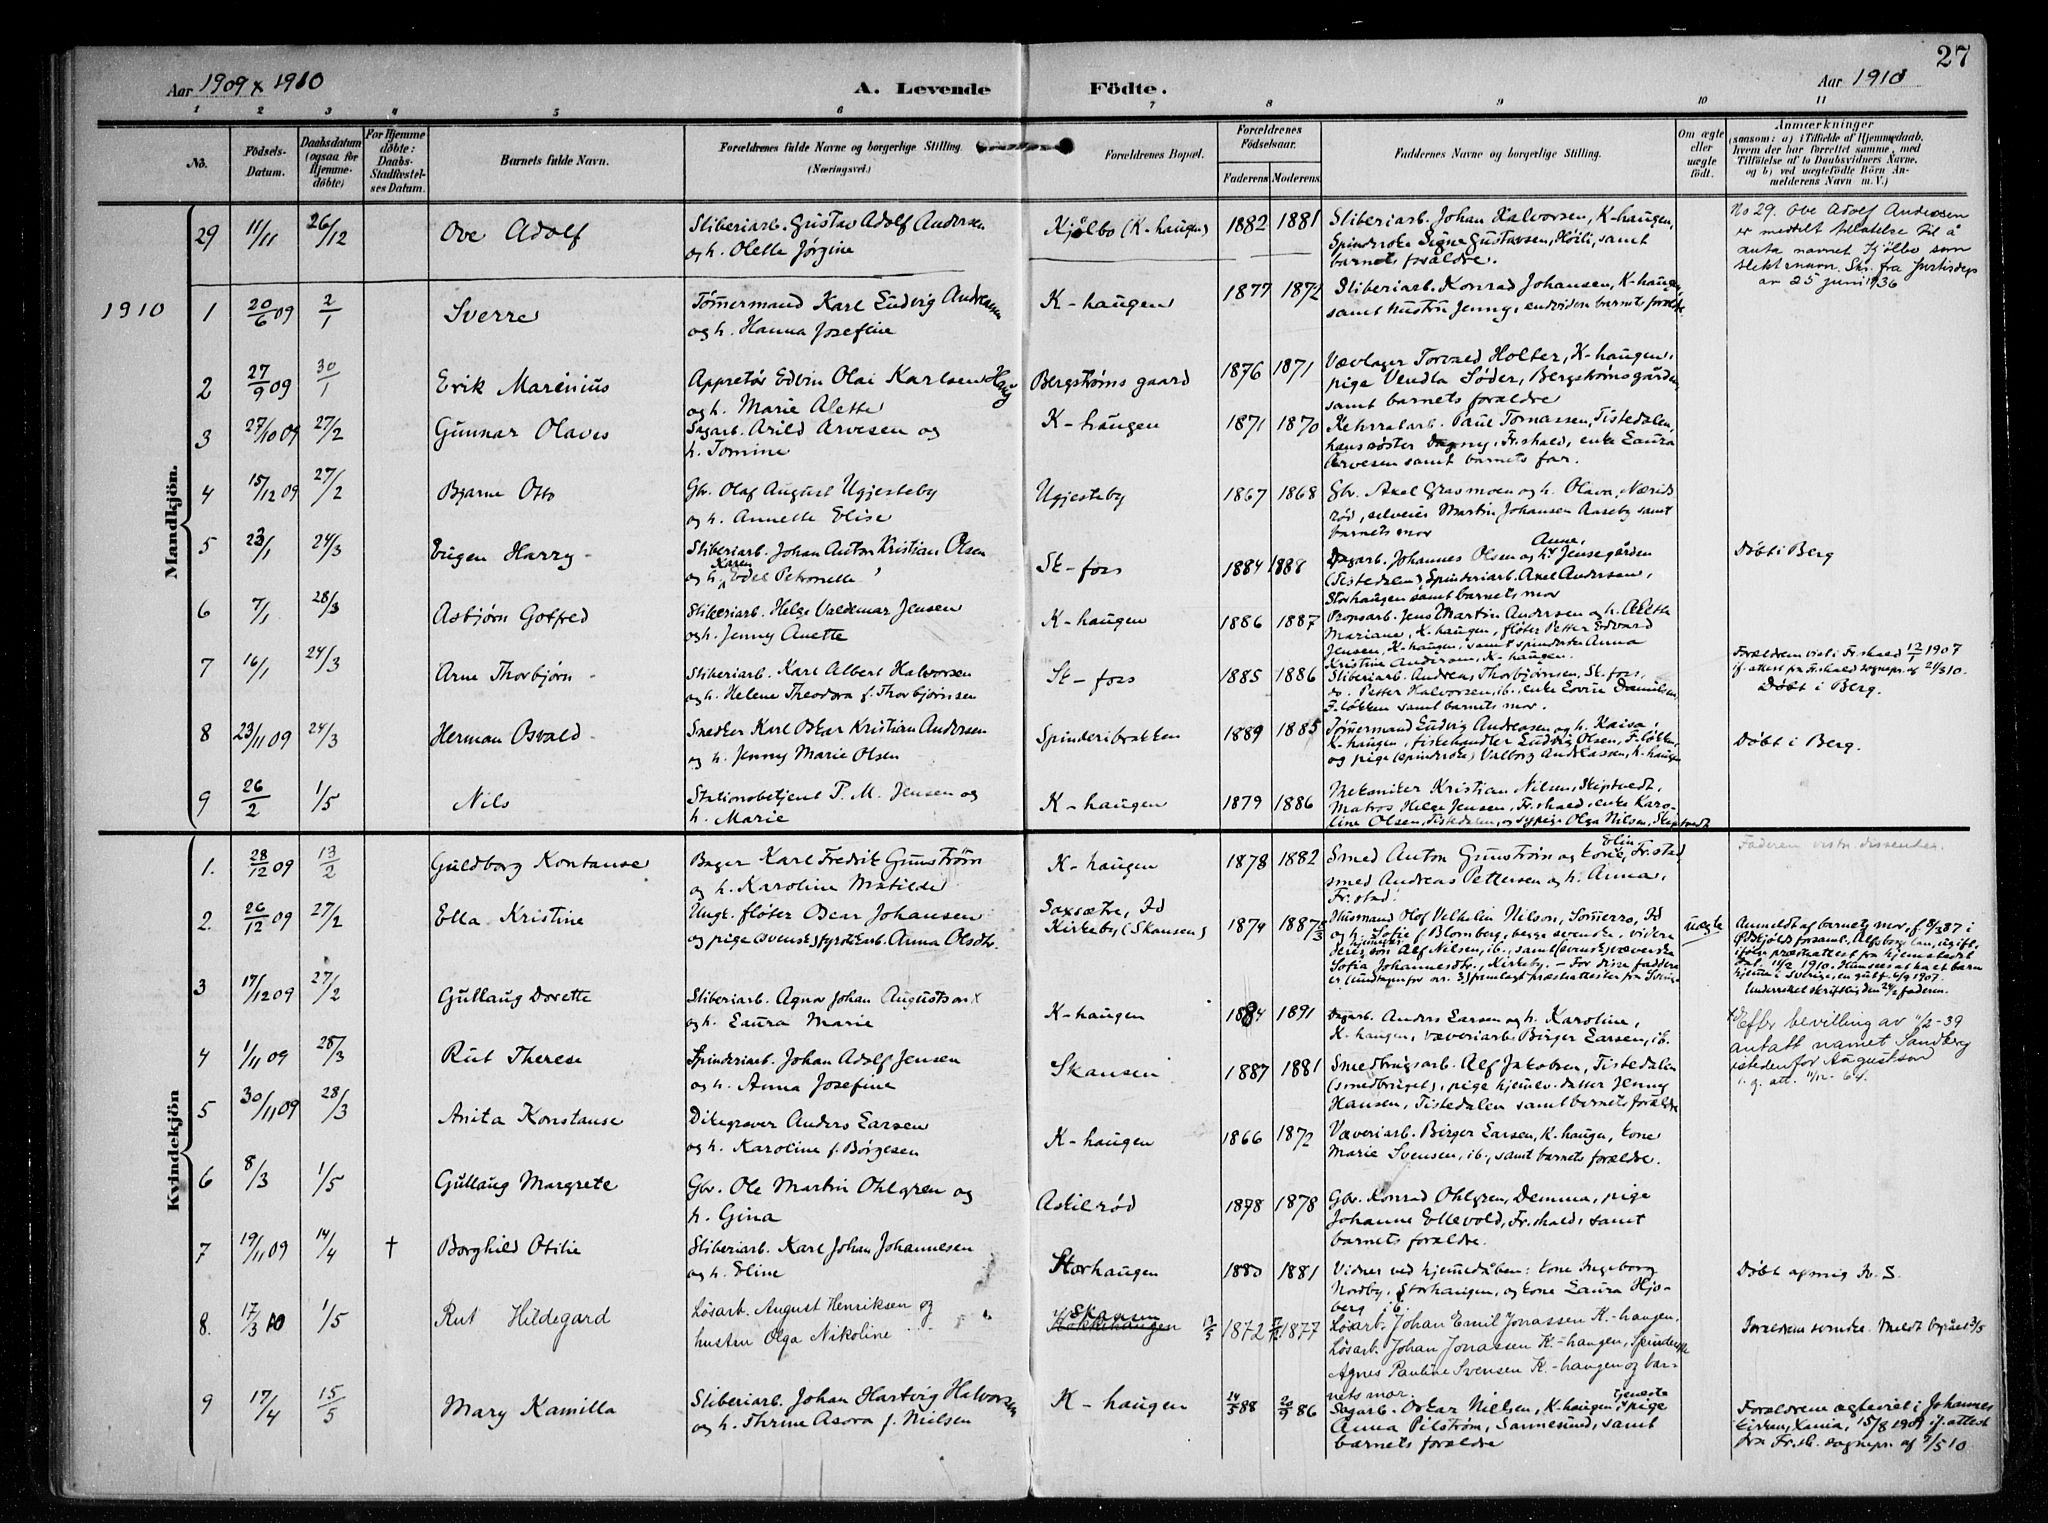 27
Aar 1909 x 1910
A. Levende Fødte.
Aar 1910
1 2 3 4 5 6 7 8 9 10 11
No.
Födsels-Datum.
Daabsdatum (ogsaa for Hjemme-döbte)
For Hjemme döbte: Daabs-Stadfæstel-ses Datum.
Barnets fulde Navn.
Forældrenes fulde Navne og borgerlige Stilling. (Næringsvei.)
Forældrenes Bopæl.
Forældrenes Födselsaar.
Faderens Moderens
Faddernes Navne og borgerlige Stilling.
Om ægte eller uægte födt.
Anmærkninger
(saasom: a) i Tilfælde af Hjemmedaab, hvem der har forrettet samme, med Tilföielse af to Daabsvidners Navne, og b) ved uægtefödte Börn An-melderens Navn m. V.)
Mandkjön.
29 11/11 26/12 Ove Adolf
Sliberiarb. Gustav Adolf Andersen
og h. Olette Jørgine
Kjølbo (K-haugen) 1882 1881
Sliberiarb. Johan Halvorsen, K-haugen,
Spinderske Signe Gustavsen, Høili, samt
barnets forældre.
No 29. Ove Adolf Andersen
er meddelt tillatelse til å
anta navnet Kjølbo som
slektsnavn. Skr. fra Justisdep.
av 25 juni 1936
1910
1 20/6 09 2/1 Sverre
Tømmermand Karl Ludvig Andreassen
og h. Hanna Josefine
K-haugen 1877 1872
Sliberiarb. Konrad Johansen, K-haugen,
samt hustru Jenny, endviden barnets forældre.
2 27/9 09 30/1 Erik Marenius
Appretør Edvin Olai Karlsen Haug
og h. Marie Alette
Bergstrøms gaard 1876 1871
Vævlager Torvald Holter, K-haugen,
pige Vendla Søder, Bergstrømsgården
samt barnets forældre
3 27/10 09 27/2 Gunnar Olaves
Sagarb. Arild Arvesen og
h. Tomine
K-haugen 1871 1870
Paul Tomassen, Tistedalen,
hans søster Dagny, Fr.shald, enke Laura
Arvesen samt barnets far.
4 15/12 09 27/2 Bjarne Otto
Gbr. Olaf August Ugjesteby
og h. Annette Elise
Ugjesteby 1867 1868
Gbr. Axel Grasmoen og h. Olava, Nærids
rød, selveier Martin Johansen Aaseby samt
barnets mor
5 23/1 24/3 Eugen Harry
Sliberiarb. Johan Anton Kristian Olsen
og h. Karen Evdel Petronelle
Sk-foss 1884 1888
Dagarb. Johannes Olsen og h. Anne, Jensegården
(Tistedalen), Spinderiarb. Axel Andersen,
Storhaugen samt barnets mor
Døbt i Berg
6 7/1 28/3 Asbjørn Gotfred
Sliberiarb. Helge Valdemar Jensen
og h. Jenny Anette
K-haugen 1886 1887
Propsarb. Jens Martin Andersen og h. Alette
Mariane, K-haugen, fløter Petter Edvard
Jensen, K-haugen, samt spinderske Anna
Kristine Andersen, K-haugen.
7 16/1 24/3 Arne Thorbjørn
Sliberiarb. Karl Albert Halvorsen
og h. Helene Theodora f. Thorbjørnsen
Sk-foss 1885 1886
Sliberiarb. Andreas Thorbjørnsen, Sk.foss,
do. Petter Halvorsen, ib., enke Lovise Danielsen,
F.løkken samt barnets mor.
Forældrene viet i Fr.shald 12/1 1907
if. attest fra Fr.shald sognepr. af 21/3 10.
Døbt i Berg.
8 23/11 09 24/3 Herman Osvald
Snedker Karl Oskar Kristian Andersen
og h. Jenny Marie Olsen
Spinderibrakken 1889 1885
Tømmermand Ludvig Andreasen og h. Kaisa,
K-haugen, fiskehandler Ludvig Olsen, F.løkken,
og pige (spinderske) Valborg Andreassen, K-haugen
Døbt i Berg.
9 26/2 1/5 Nils
Stationsbetjent P. M. Jensen og
h. Marie
K-haugen 1879 1886
Mekaniker Kristian Nilsen, Skiptvedt,
Matros Helge Jensen, Fr.shald, enke Karo-
line Olsen, Tistedalen, og sypige Olga Nilsen, Skiptvedt
Kvindekjön
1. 28/12 09 13/2 Guldborg Kontanse
Bager Karl Fredrik Gunstrøm
og h. Karoline Matilde
K-haugen 1878 1882
Smed Anton Gunstrøm og kone Elin, Fr.stad
smed Andreas Pettersen og h. Anna,
Fr.stad.
Faderen vistn. dissenter.
2. 26/12 09 27/2 Ella Kristine
Ungk. fløter Oscar Johansen
og pige (svensk) fyrstikarb. Anna Olsdtr.
Saxsætre, Id
Kirkeby (Skansen) 1874 1887
Husmand Olof Velhelm Nilson, Sømerro, Id
og h. Sofie (Blomberg, begge svenske, videre
deres hjemmev. søn Alf Nilsen, ib., samt (svensk) væverske
Sofia Johannesdtr., Kirkeby. – For disse faddere
er (undtagen for nr. 3) fremlagt præsteattester fra Sverige
uægte
Anmeldt af barnets mor, f. 8/3 87 i
Ødskjölds forsaml., Alfsborgs län, ugift,
ifølge præsteattest fra hjemstedet
dat. 11/2 1910. Hun sees at ha et barn
hjemme i Sverige, en gut f. 6/9 1907.
Underrettet skriftlig den 24/2 faderen.
3 17/12 09 27/2 Gullaug Dorette
Sliberiarb. Agnar Johan Augustson x
og h. Laura Marie
K-haugen 1884 1891
Dagarb. Anders Larsen og h. Karoline,
K-haugen, væveriarb. Birger Larsen, ib.
x) Efter bevilling av 11/2-39
antatt navnet Sandberg
istedenfor Augustson
i. g. att. 11/12-64.
4 1/11 09 28/3 Rut Therese
Spinderiarb. Johan Adolf Jensen
og h. Anna Josefine
Skansen 1887 1881
Smedbrugsarb. Alf Jakobsen, Tistedalen
(smedbruget), pige hjemmev. datter Jenny
Hansen, Tistedalen samt barnets forældre
5 30/11 09 28/3 Anita Konstanse
Dikegraver Anders Larsen
og h. Karoline f. Børgesen
K-haugen 1866 1872
Væveriarb. Birger Larsen, K-haugen, kone
Marie Svensen, ib., samt barnets forældre.
6 8/3 1/5 Gullaug Margrete
Gbr. Ole Martin Ohlgren og
h. Gina
Askilrød 1878 1878
Gbr. Konrad Ohlgren, Demma, pige
Johanne Ellevold, Fr.shald, samt
barnets forældre.
7 19/11 09 14/4 † Borghild Otilie
Sliberiarb. Karl Johan Johannesen
og h. Eline
Storhaugen 1880 1881
Vidner ved hjemmedåben: kone Ingeborg
Nordby, Storhaugen, og kone Laura Hjo-
berg ib.
Døbt af mig K. S.
8. 17/3 10 1/5 Rut Hildegard
Løsarb. August Henriksen og
hustru Olga Nikoline
Skansen
Kokkehaugen 1872 1877
Løsarb. Johan Emil Jonassen K-haugen,
Løsarb. Johan Jonassen K-haugen, Spinderske
Agnes Pauline Svensen K-haugen og bar-
nets mor.
Forældrene svenske.
9 17/4 15/5 Mary Kamilla
Sliberiarb. Johan Hartvig Halvorsen
og h. Thrine Asora f. Nielsen
K-haugen 14/5 88 20/9 86
Sagarb. Oskar Nielsen, K-haugen, tjeneste pige
Anna Pilstrøm, Sannesund, samt
barnets forældre
Forældrene ægteviet i Johannes
kirken, Kania, 15/8 1909 if. attest
fra Fr.sh. sognepr. af 9/5 10